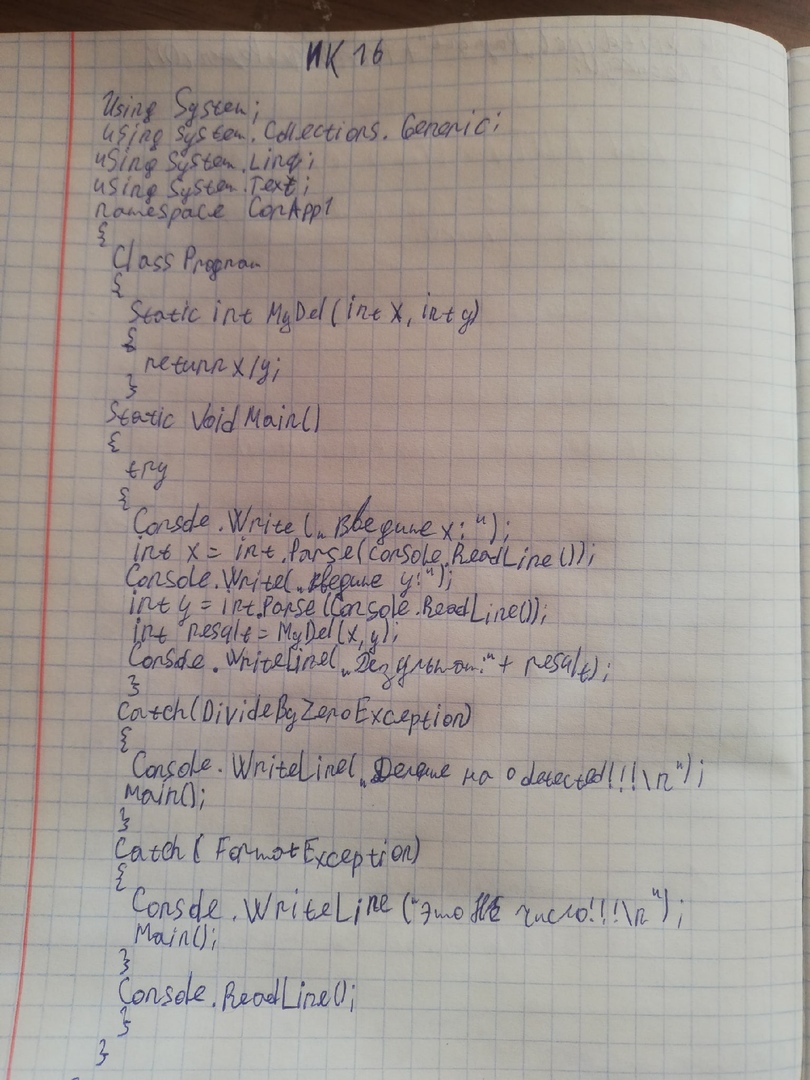 ИК 16
Using System;
using System.Collections.Generic;
using System.Linq;
using System.Text;
namespace ConApp1
{
Class Program
{
Static int MyDel(int x, int y)
{
return x/y;
}
Static Void Main()
{
try
{
Console.Write(„Введите x:");
int x = int.Parse(Console.ReadLine());
Console.Write(„введите y:");
int y = int.Parse(Console.ReadLine());
int resalt = MyDel(x,y);
Console.WriteLine(„Результат:"+ resalt);
}
Catch(DivideByZeroException)
{
Console.WriteLine(„Деление на 0 detected!!!\n");
Main();
}
Catch( FormatException)
{
Console.WriteLine("Это НЕ число!!!\n");
Main();
}
Console.ReadLine();
}
}